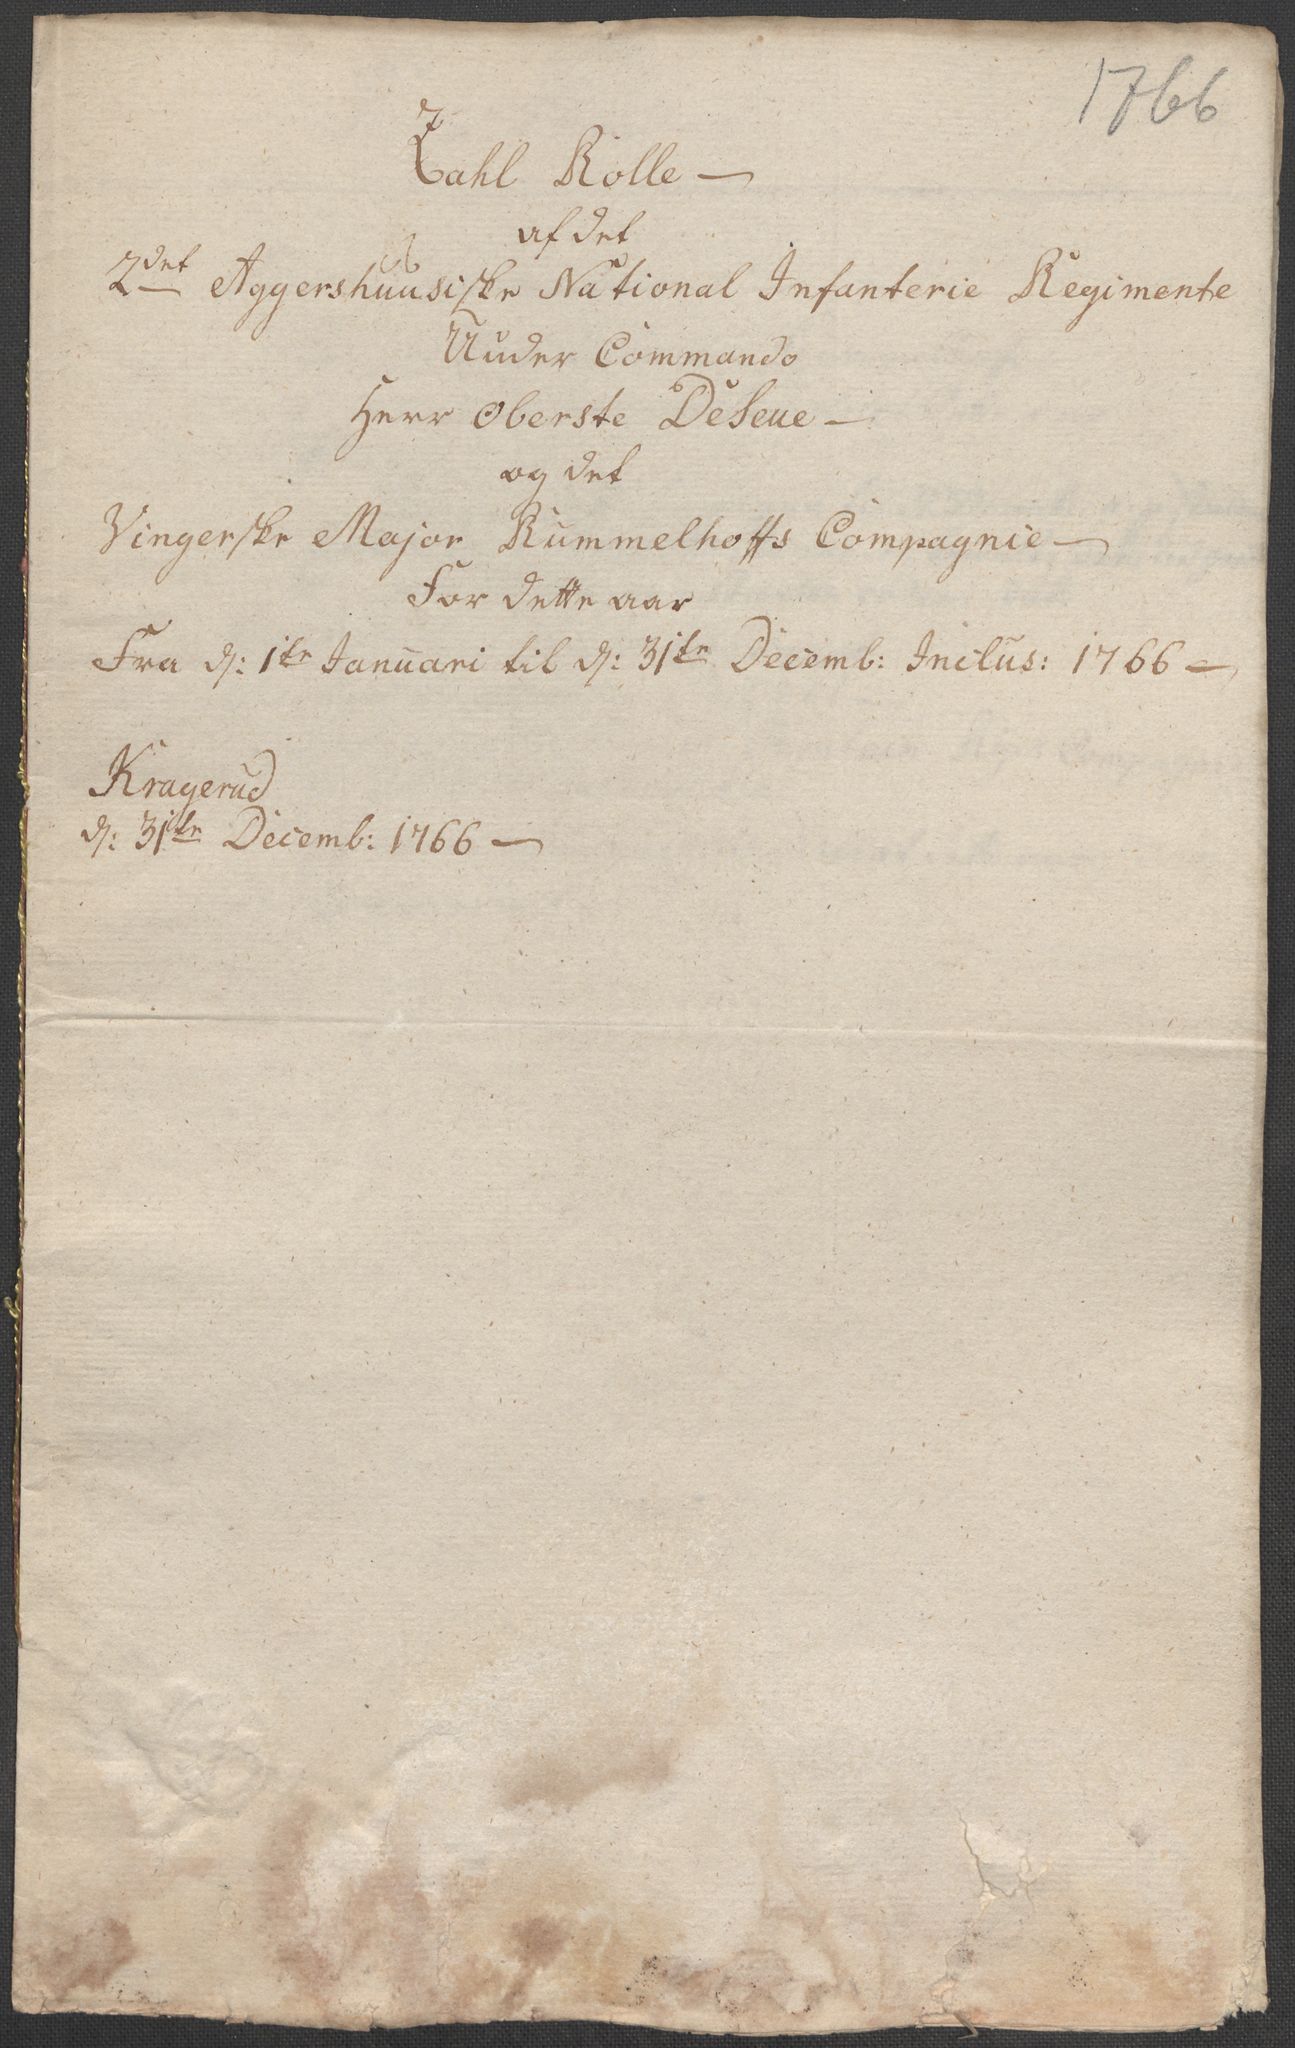 1766
Zahl Rolle
af det
2det Aggershuusiske National Infanterie Regimente
Under Commando
Herr Oberste DeSeue
og det
Vingerske Major Rummelhoffs Compagnie
For dette aar
Fra d: 1te Januari til d: 31te Decemb: Inclus: 1766
Kragerud
d: 31te Decemb: 1766